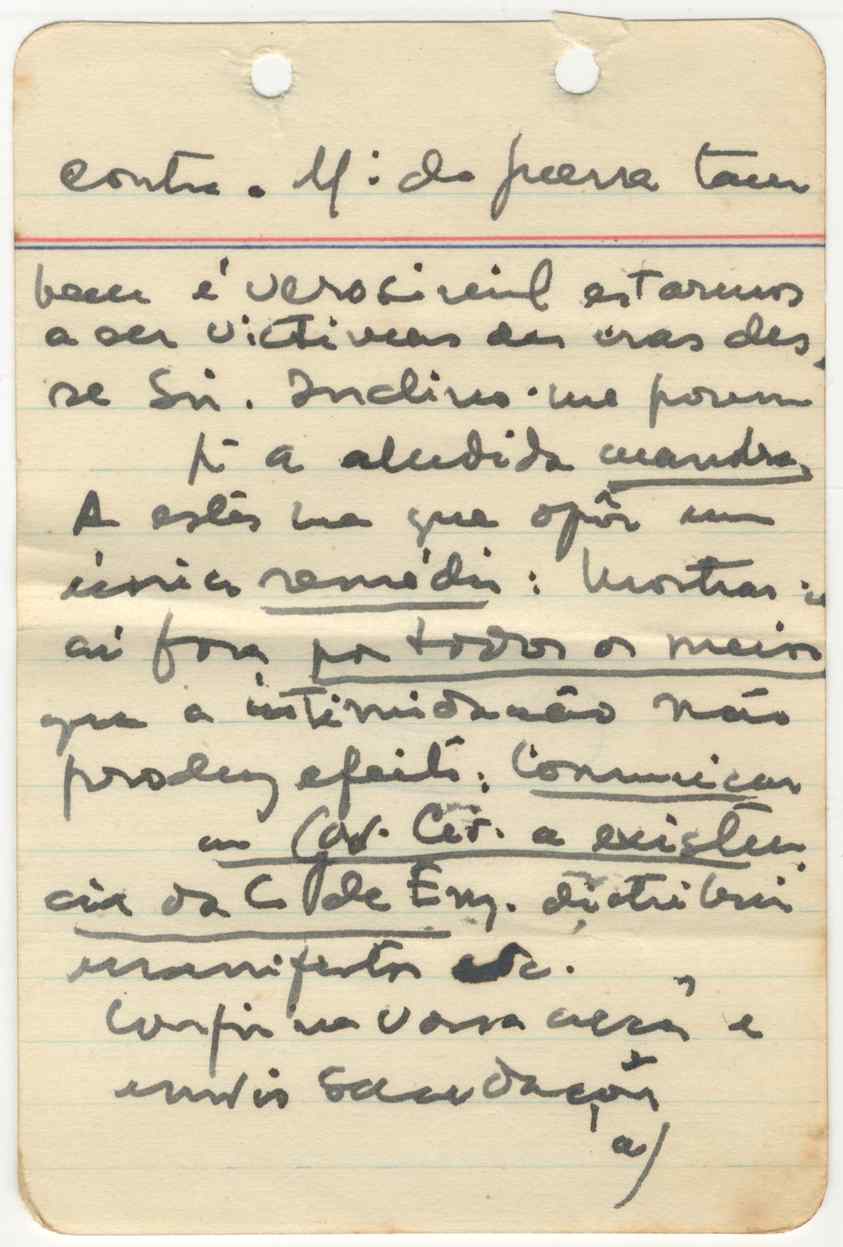 contra o M.º da guerra tam
bem é verosimil estarmos
a ser victimas das iras des,
se Snr. Inclino-me porem
pª a aludida manobra,
A esta ha que opôr um
único remédio: Mostrar
aí fora por todos os meios
que a intimidação não
produz efeito: Comunicar
ao Gov. Civ. a existên
cia da C. de Eng. distribuir
manifestos etc.
Confio na vossa acção e
envio saudações
a)